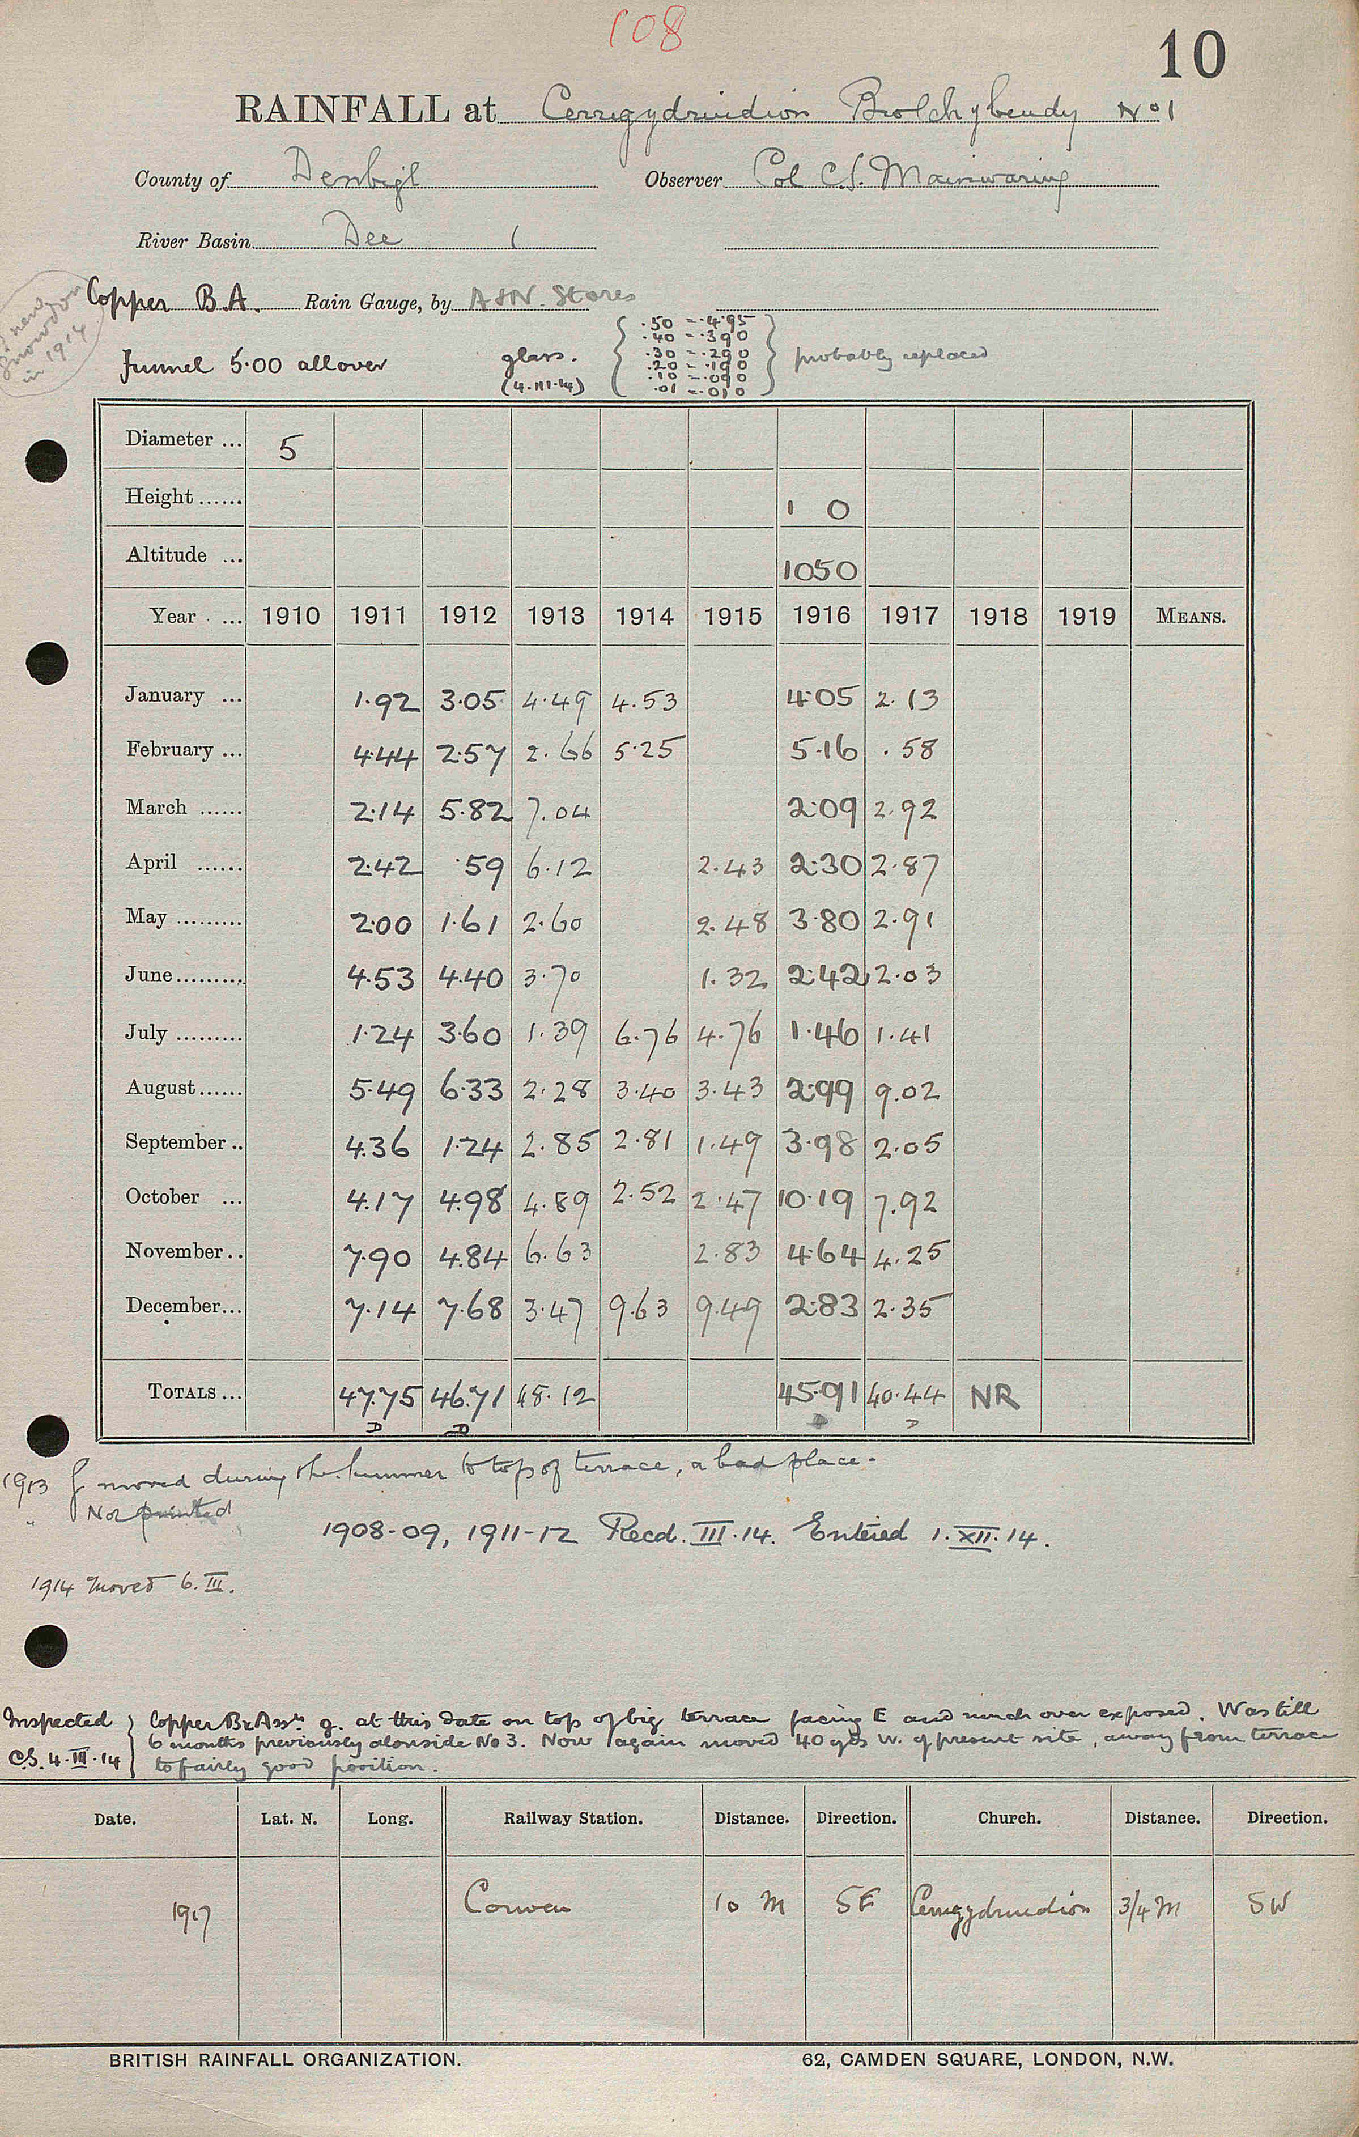 108
10
RAINFALL at Cerrigydruidion Brolchybendy No 1
County of Denbigh Observer Col C.S. Mainwaring
River Basin Dee 1
Copper B.A. Rain Gauge, by A & N. Stores
new Snowdon in 1914
Funnel 5.00 all over glass. (4.III.14) probably replaced
.50 - .495
.40 - .390
.30 - .290
.20 - .190
.10 - .090
.01 - .010
Diameter ... 5
Height ...... 1 0
Altitude ... 1050
Year ... 1910 1911 1912 1913 1914 1915 1916 1917 1918 1919 MEANS.
January ... 1.92 3.05 4.49 4.53 4.05 2.13
February ... 4.44 2.57 2.66 5.25 5.16 .58
March ...... 2.14 5.82 7.04 2.09 2.92
April ...... 2.42 .59 6.12 2.43 2.30 2.87
May ......... 2.00 1.61 2.60 2.48 3.80 2.91
June ......... 4.53 4.40 3.70 1.32 2.42 2.03
July ......... 1.24 3.60 1.39 6.76 4.76 1.46 1.41
August ...... 5.49 6.33 2.28 3.40 3.43 2.99 9.02
September .. 4.36 1.24 2.85 2.81 1.49 3.98 2.05
October ... 4.17 4.98 4.89 2.52 2.47 10.19 7.92
November .. 7.90 4.84 6.63 2.83 4.64 4.25
December ... 7.14 7.68 3.47 9.63 9.49 2.83 2.35
TOTALS ... 47.75 46.71 48.12 45.91 40.44 NR
D D D D
1913 g moved during the summer to top of terrace, a bad place.
" Not printed
1908-09, 1911-12 Recd. III.14. Entered 1.XII.14.
1914 moved 6.III.
Inspected C.S. 4.III.14
Copper Br Assn g. at this date on top of big terrace facing E and much over exposed. Was till
6 months previously alongside No 3. Now again moved 40 yds W. of present site, away from terrace
to fairly good position.
Date. Lat. N. Long. Railway Station. Distance. Direction. Church. Distance. Direction.
1917 Corwen 10 M SE Cerrigydruidion 3/4 M SW
BRITISH RAINFALL ORGANIZATION. 62, CAMDEN SQUARE, LONDON, N.W.